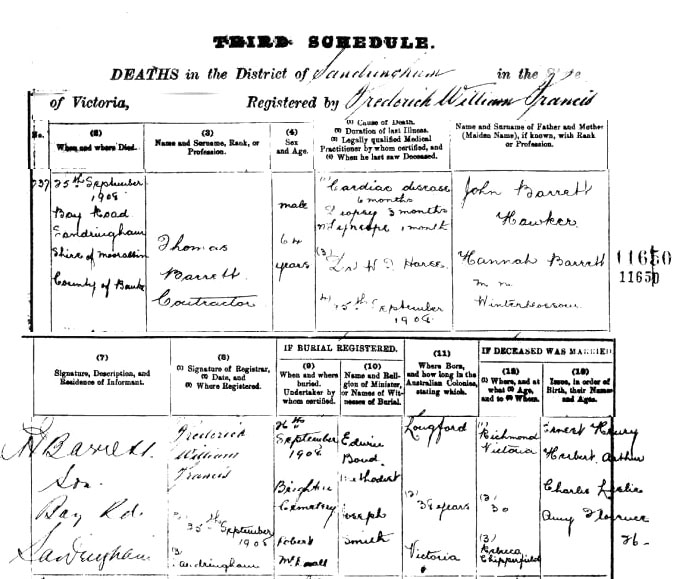 THIRD SCHEDULE.
DEATHS in the District of Sandringham in the State
of Victoria, Registered by Frederick William Francis
No.
(2)
When and where Died.
(3)
Name and Surname, Rank, or
Profession.
(4)
Sex
and Age.
(1) Cause of Death.
(2) Duration of last Illness.
(3) Legally qualified Medical
Practitioner by whom certified, and
(4) When he last saw Deceased.
Name and Surname of Father and Mother
(Maiden Name), if known, with Rank
or Profession.
737
25th September
1908
Bay Road
Sandringham
Shire of Moorabbin
County of Bourke
Thomas
Barrett
Contractor
male
64
years
(1) Cardiac disease
6 months
Dropsy 3 months
Syncope 1 month
(3)
Dr H
(4) 25th September
1908
John Barrett
Hawker
Hannah Barrett
m n
11650
11650
(7)
Signature, Description, and
Residence of Informant.
(8)
(1) Signature of Registrar,
(2) Date, and
(3) Where Registered.
IF BURIAL REGISTERED.
(9)
When and where
buried.
Undertaker by
whom certified.
(10)
Name and Reli-
gion of Minister,
or Names of Wit-
nesses of Burial.
(11)
Where Born,
and how long in the
Australian Colonies,
stating which.
IF DECEASED WAS MARRIED
(12)
(1) Where, and at
what (2) Age,
and to (3) Whom.
(13)
Issue, in order of
Birth, their Names
and Ages.
Barrett
Son
Bay Rd.
Sandringham
Frederick
William
Francis
25th September
1908
(3) Sandringham
26th
September
1908
Brighton
Cemetery
Robert
Edwin
Methodist
Joseph
Smith
Longford
(2) 38 years
Victoria
(1) Richmond
Victoria
(2) 30
(3) Rebecca
Chipperfield
Ernest Henry
Herbert Arthur
Charles Leslie
Amy Florence